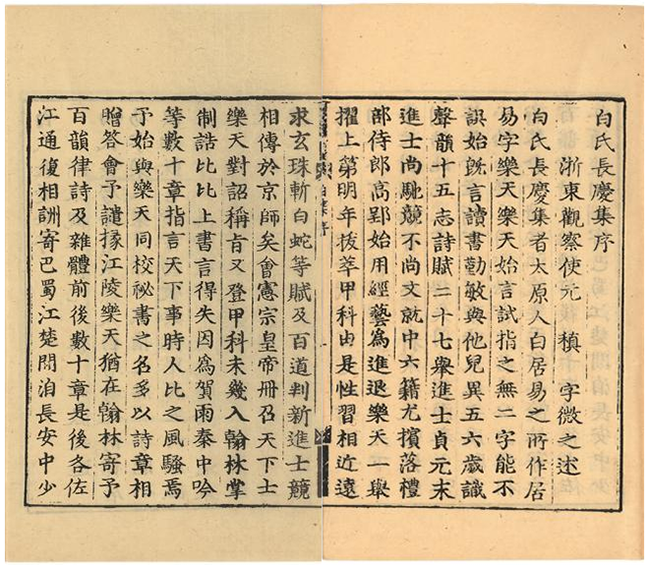 白氏長慶集序
浙東觀察使元 稹 字微之述
白氏長慶集者太原人白居易之所作居
易字樂天樂天始言試指之無二字能不
誤始旣言讀書勤敏與他兒異五六歲識
聲韻十五志詩賦二十七舉進士貞元末
進士尚馳競不尚文就中六籍尤擯落禮
部侍郎高郢始用經藝爲進退樂天一舉
擢上第明年拔萃甲科由是性習相近遠
求玄珠斬白蛇等賦及百道判新進士競
相傳於京師矣會憲宗皇帝冊召天下士
樂天對詔稱旨又登甲科未幾入翰林掌
制誥比比上書言得失因爲賀雨秦中吟
等數十章指言天下事時人比之風騷焉
予始與樂天同校祕書之名多以詩章相
贈答會予譴掾江陵樂天猶在翰林寄予
百韻律詩及雜體前後數十章是後各佐
江通復相詶寄巴蜀江楚間洎長安中少